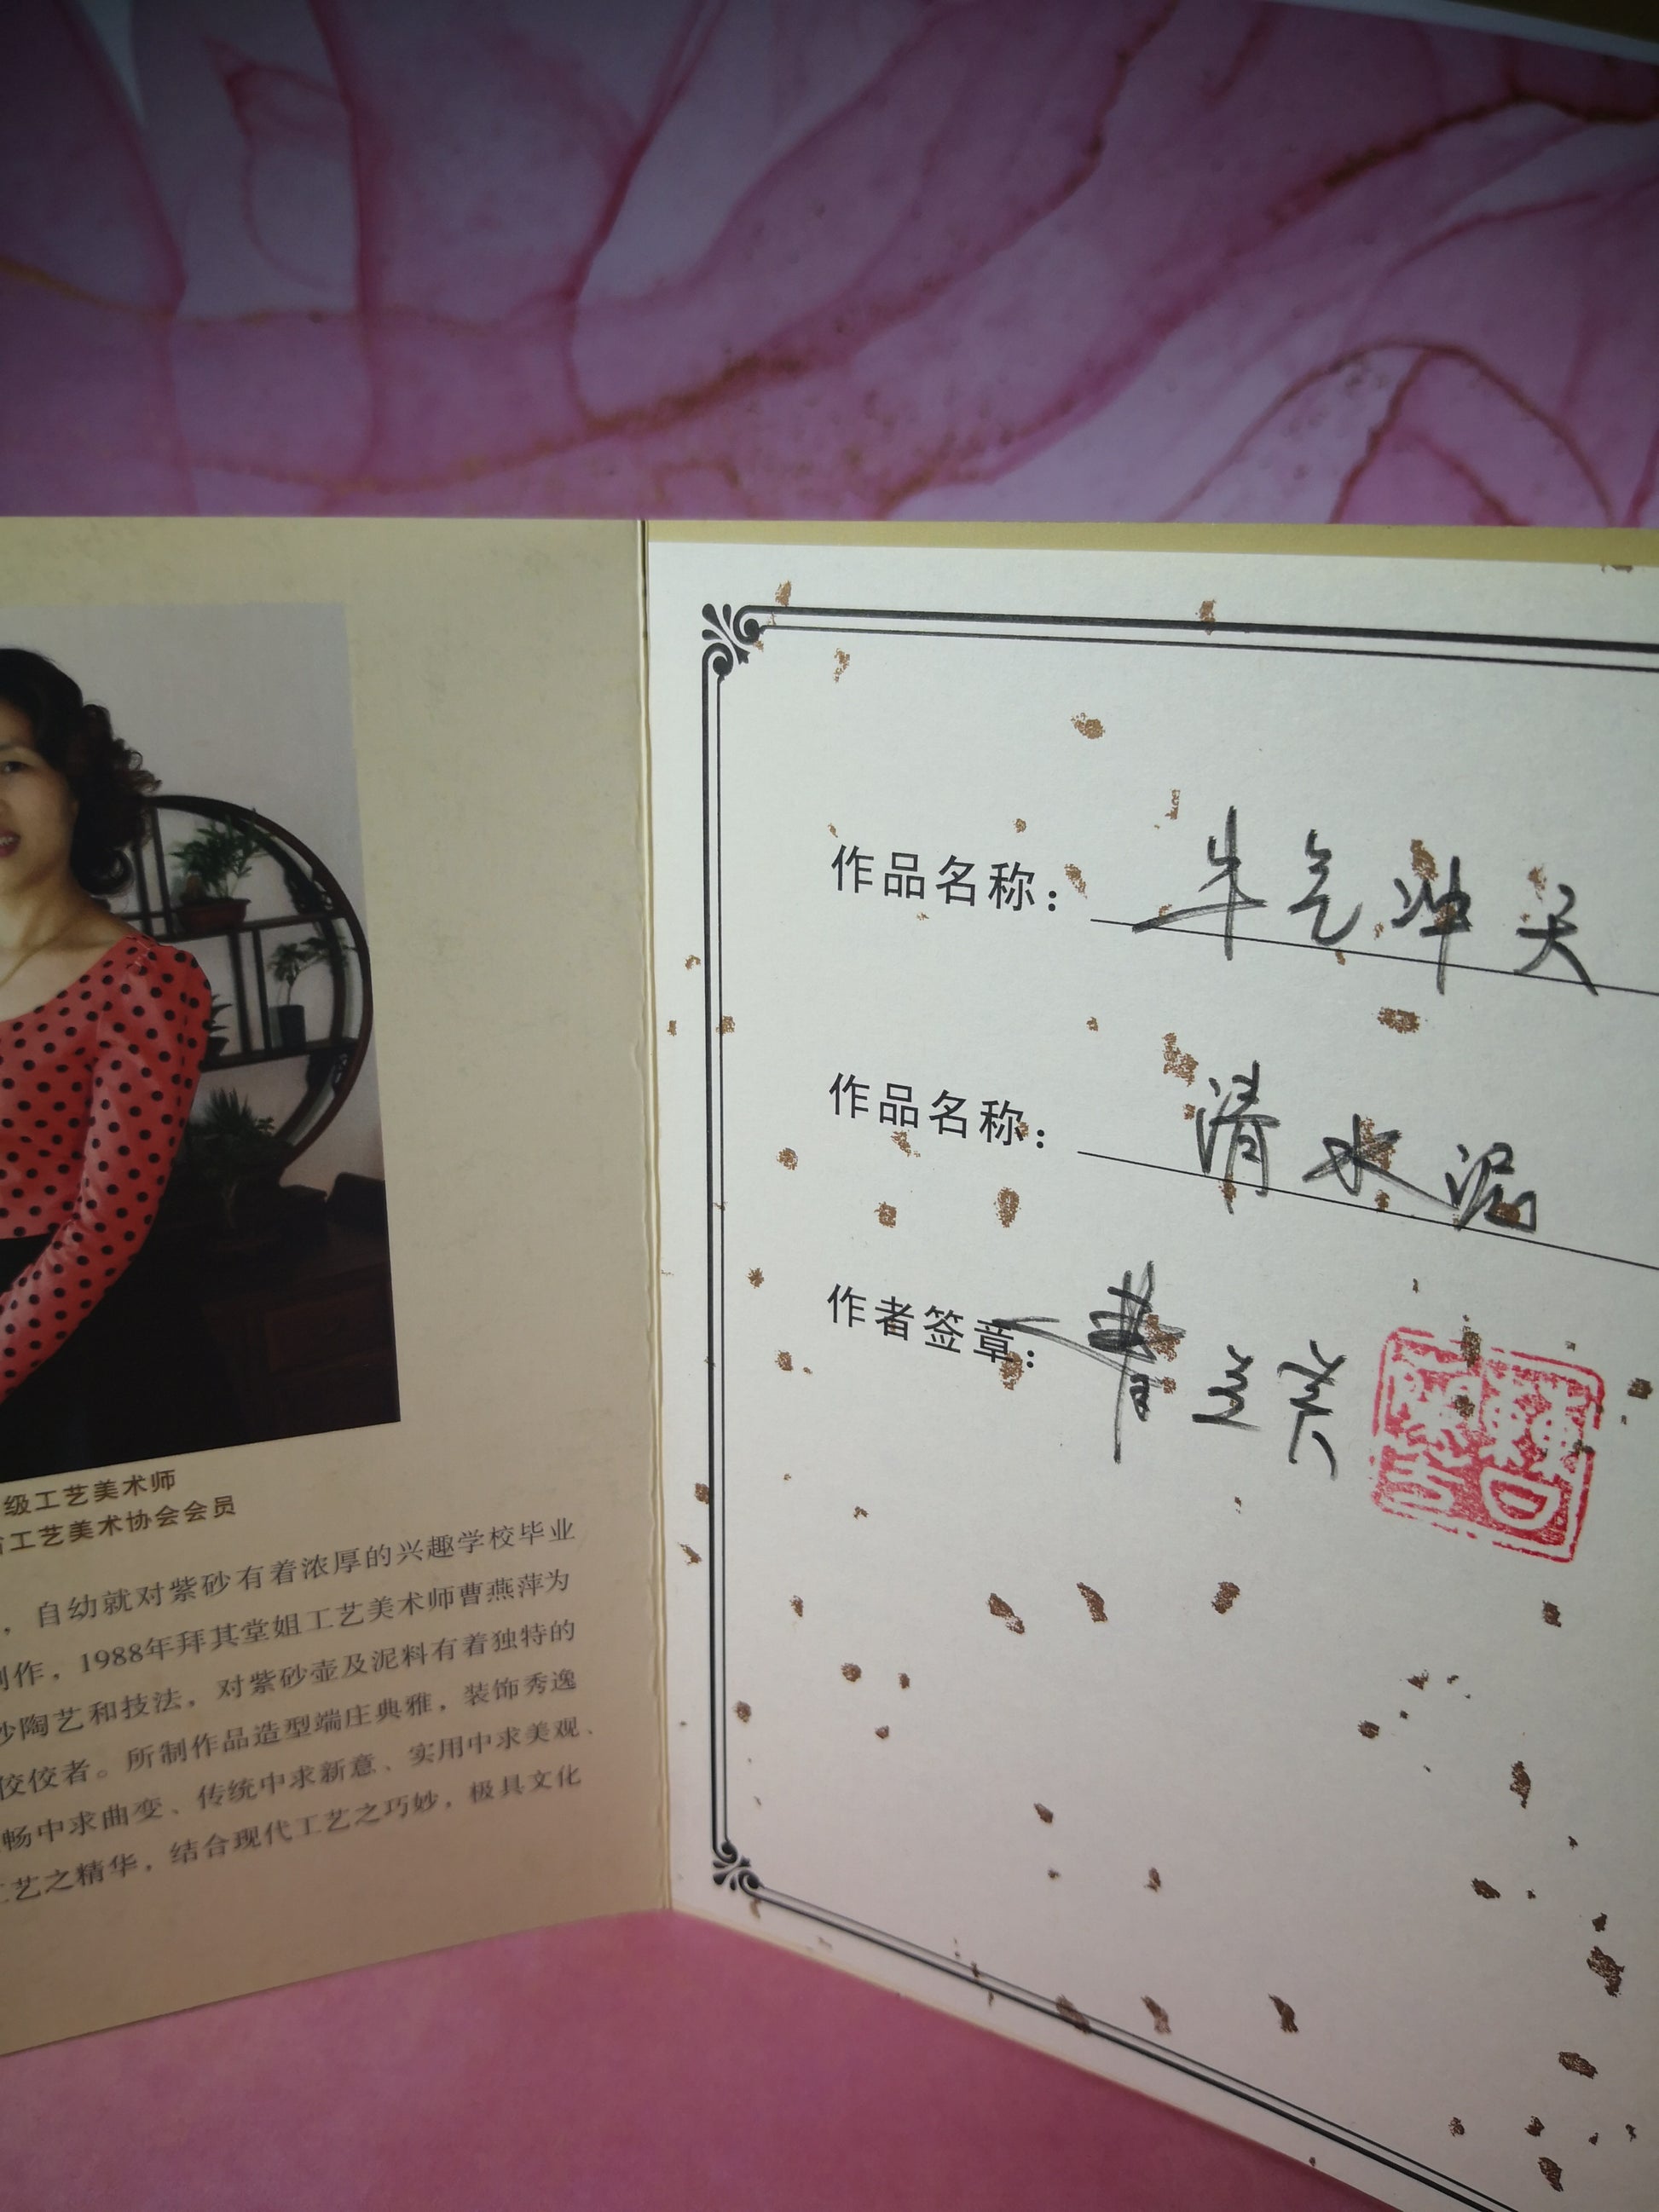 级工艺美术师
工艺美术协会会员
，自幼就对紫砂有着浓厚的兴趣学校毕业
制作，1988年拜其堂姐工艺美术师曹燕萍为
砂陶艺和技法，对紫砂壶及泥料有着独特的
佼佼者。所制作品造型端庄典雅，装饰秀逸
畅中求曲变、传统中求新意、实用中求美观、
工艺之精华，结合现代工艺之巧妙，极具文化
作品名称：牛气冲天
作品名称：清水泥
作者签章：曹